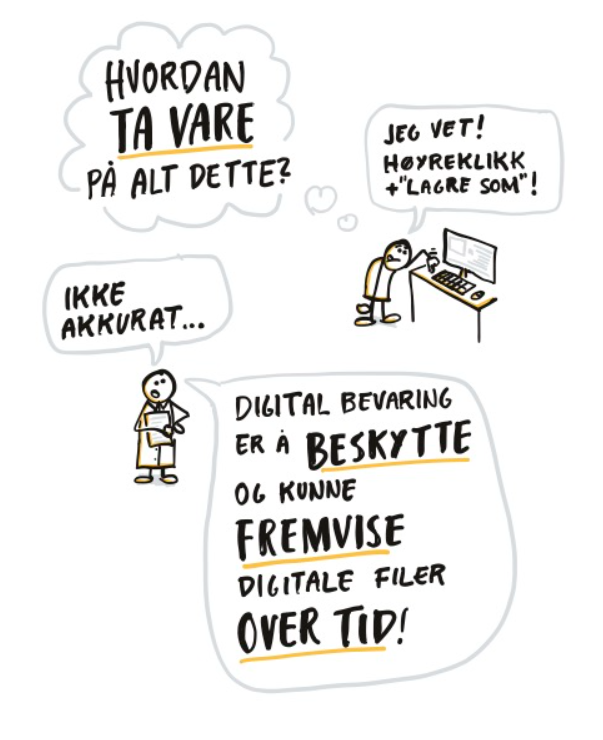 HVORDAN
TA VARE
PÅ ALT DETTE?
JEG VET!
HØYREKLIKK
+"LAGRE SOM"!
IKKE
AKKURAT...
DIGITAL BEVARING
ER Å BESKYTTE
OG KUNNE
FREMVISE
DIGITALE FILER
OVER TID!